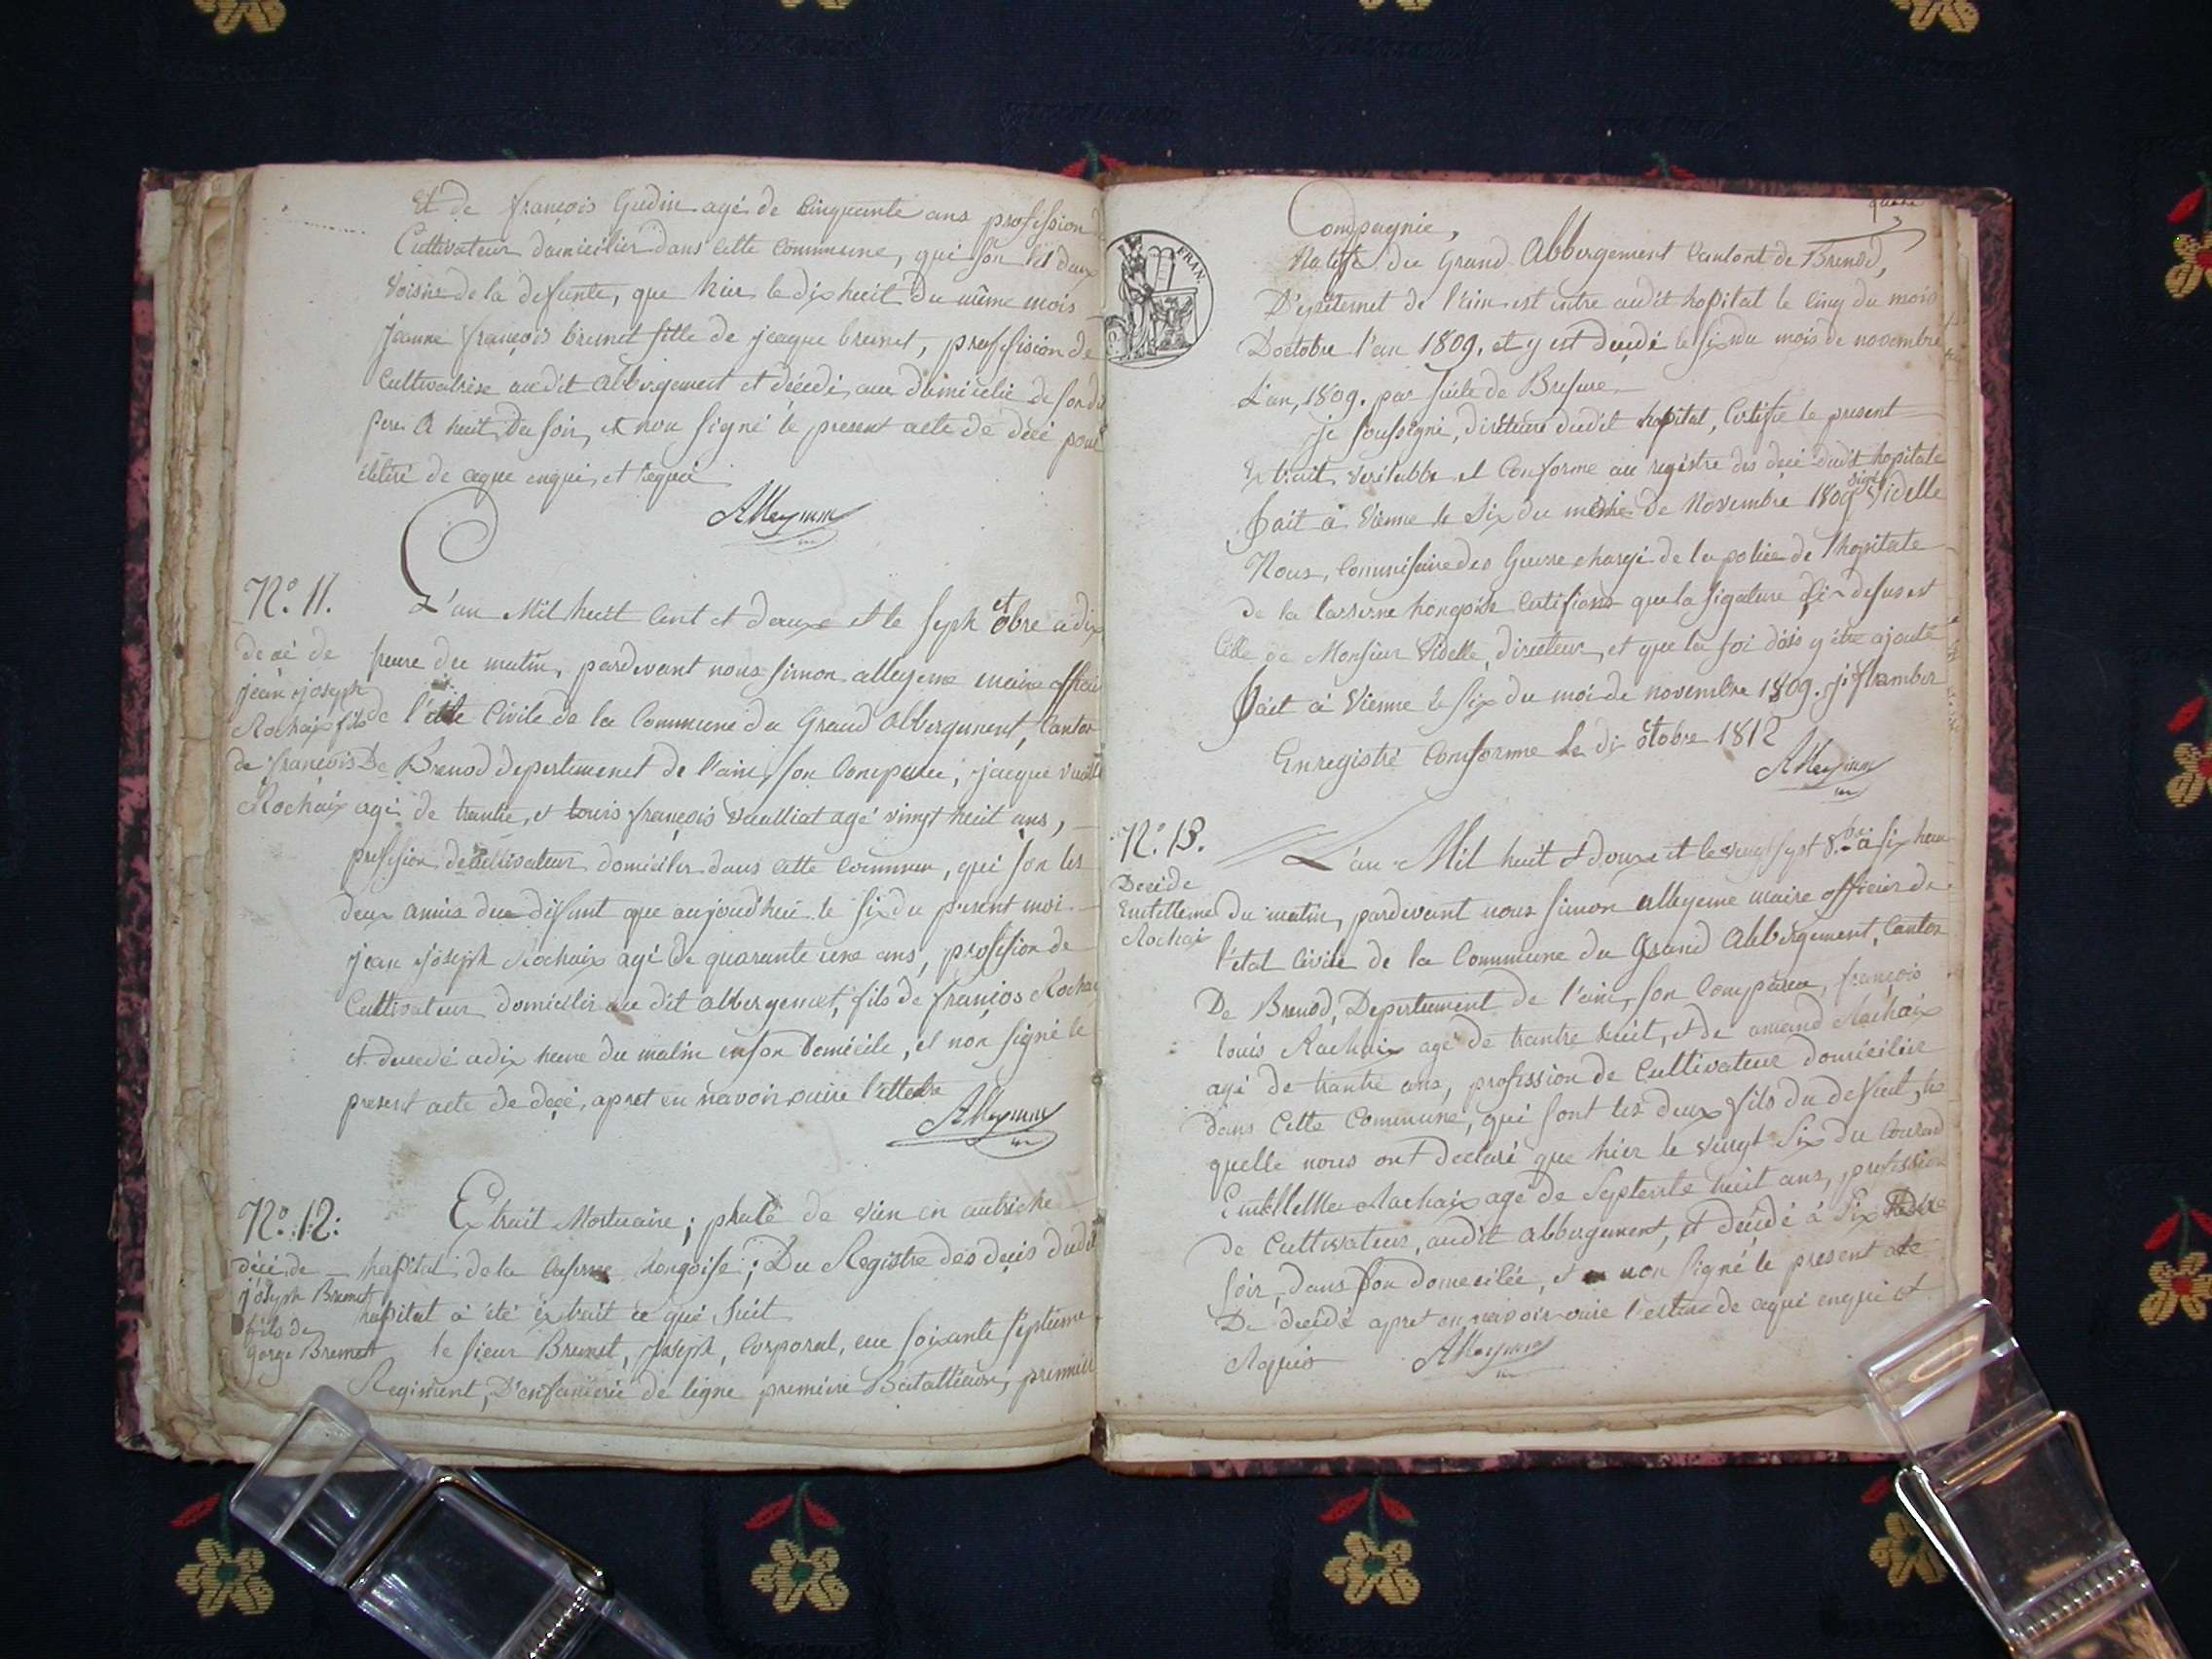 Et de françois Gudin agé de Cinquante ans profession
Cultivateur domicilier dans cette Commune, qui son les deux
Voisins de la defunte, que hier le dix huit du même mois
jeanne françois brunet fille de jacque brunet, proffision de
Cultivatrise audit abbergement et décédé au domicilie de son dit
pere a huit du soir, et nou signé le present acte de décé pour
de ceque enqui et requi
N.° 11.
L'an Mil huit Cent et douze et le sept octobre a dix
heure du matin, pardevant nous simon alleyeme maire officier
de l'état Civile de la Commune du Grand abbergement, Canton
De Brenod departement de l'ain, son Comparu, jacque
agé de trante, et louis françois vuailliat agé vingt huit ans,
profision de cultivateur domicilier dans cette Commun, qui son les
deux amis du défunt que aujoud'hui le six du present moi
jean joseph Rochaix agé de quarante une ans, profision de
Cultivateur domicilir au dit abbergemet, fils de françios Rochaix
et decedé a dix heure du matin en son Domicile, et non signé le
present acte de décé, apret en navoir ouire l'ettectre
decé de
jean joseph
Rochaix fils
de françois
Rochaix
N.° 12.
Extrait Mortuaire; place de vien en autriche
hospital de la Caserne hongoise; Du Registre des décés dudit
hospital à été extrait ce qui suit
le sieur Brunet, Joseph, Corporal, au soixante septieme
Regiment, D'enfanterie de ligne premiere Batallieon, premier
décé de
joseph Brunet
fils de
George Brunet
FRAN.
Compagnie,
Natife du Grand Abbergement Cantont de Brenod,
Depertemet de l'ain est entre audit hopital le cinq du mois
D'octobre l'an 1809. et y est decedé le six du mois de novembre
L'an, 1809. par suite de Blesure
je soussigné, directeure dudit hopital, Certifie le present
Extrait veritable et Conforme au registre des decé dudit hopitale
fait à Vienne le Six du mois de Novembre 1809 signé Fidelle
Nous, Commissaire des Guerre chargé de la police de l'hopitale
de la Casserne hongoise Certifions que la sigature Ci-desus est
Celle de Monsieur Fidelle, directeur, et que la foi dois y être ajouté
fait à Vienne le six du moi de novembre 1809.
Enregistré Conforme Le dix octobre 1812
N.° 13.
L'an Mil huit et douze et le vingt sept 8.bre à six heur
du matin, pardevant nous simon alleyeme maire officier de
l'état Civile de la Commune du Grand abbergement, Canton
De Brenod, Departement de l'ain, son Comparu, françois
louis Rachaix agé de trantre huit, et de amand Rachaix
agé de trantre ans, profession de Cultivateur domicilier
dans Cette Commune, qui sont les deux fils du defunt, les
quelle nous ont declaré que hier le vingt six du Courant
Rachaix agé de Septente huit ans, profession
de Cultivateur, audit abbergement, et decedé à six heure
soir, dans son domicilée, et non signé le present acte
De decedé apret en navoir ouire l'ecture de aqui enqui et
Requis
Decé de
Rochai